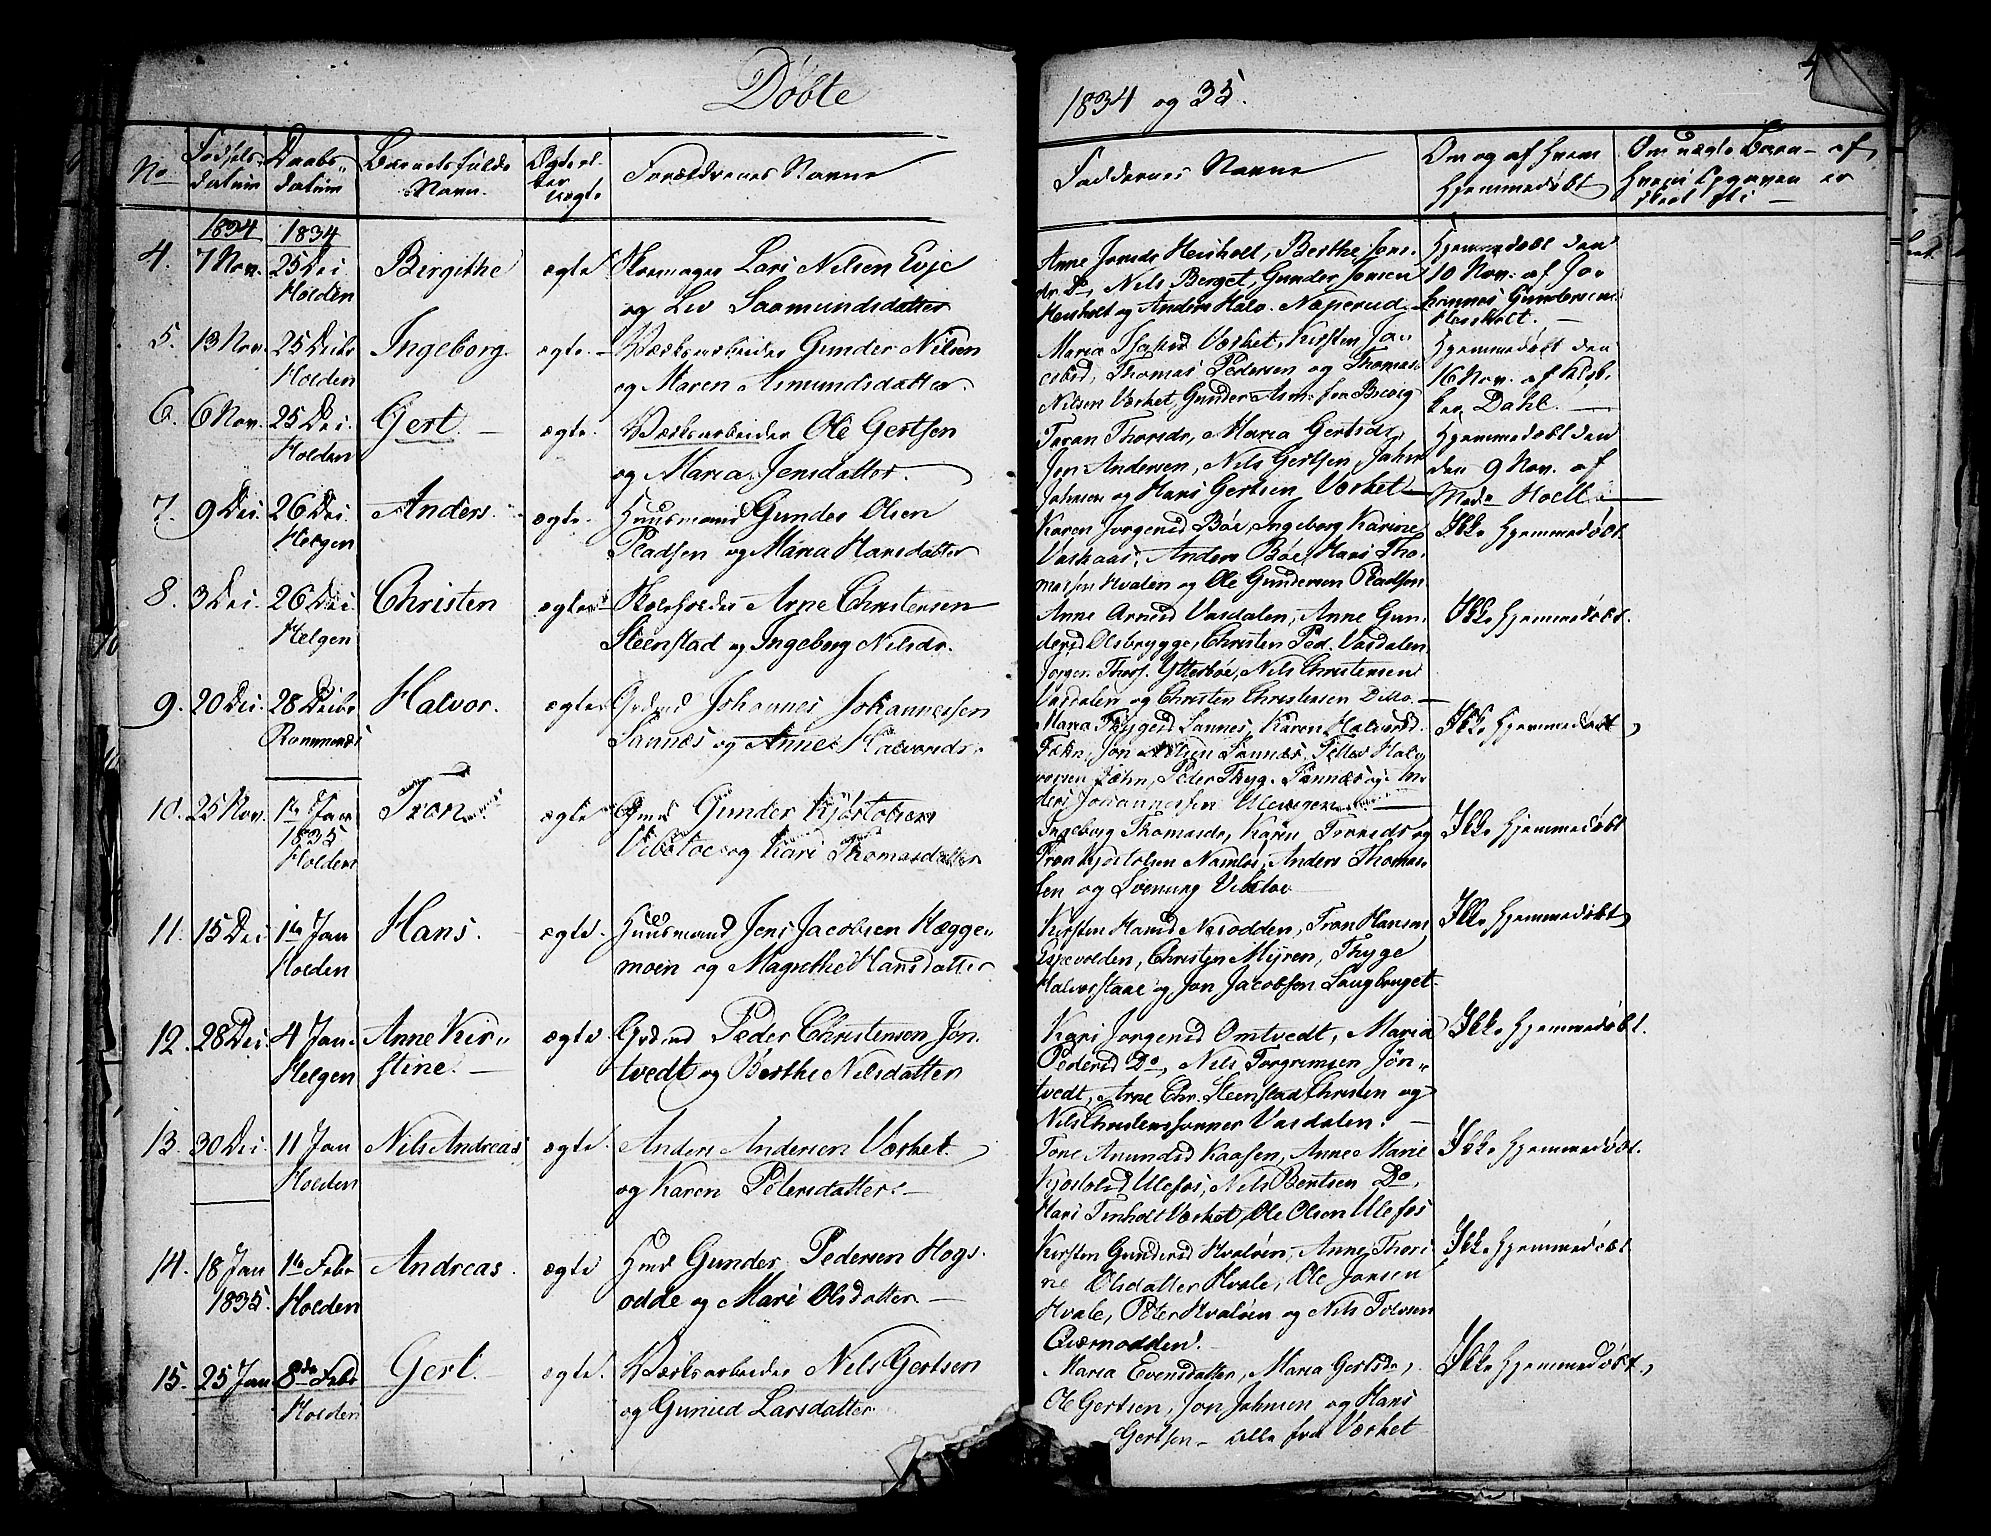 Døbte
1834 og 35.
No
Fødsels-
datum
Daabs-
datum
Barnets fulde
Navn.
Ægte el-
ler
uægte
Forældrenes Navne
Faddernes Navne
Om og af hvem
hjemmedøbt
Om uægte Barn - af
hvem Opgaven er
skeet til -
1834
1834
4. 7 Nov. 25 Dec. Holden
Birgithe
ægte
Skomager Lars Nilsen Evje
og Liv Saamundsdatter
Anne Jonsdr Heisholt, Berthe Jons-
dr Do, Nils Berget, Gunder Jonsen
Heisholt og Anders Halv. Naperud
Hjemmedøbt den
10 Nov. af Jo-
hannes Gundersen
Heisholt.
5. 13 Nov. 25 Decbr Holden
Ingeborg.
ægte.
Værksarbeider Gunder Nilsen
og Maren Asmundsdatter
Værket, Kirsten
Thomas Pedersen og Thomas
Nilsen Værket, Gunder
Hjemmedøbt den
16 Nov. af
Dahl.
6. 6 Nov. 25 Dec. Holden
Gert.
ægte.
Værksarbeider Ole Gertsen
og Maria Jensdatter.
Taran Thorsdr, Maria Gertsdr
Jon Andersen, Nils Gertsen, John
Johnsen og Hans Gertsen Værket
Hjemmedøbt den
den 9 Nov. af
Mad. Hoell.
7. 9 Dec. 26 Dec. Helgen
Anders.
ægte.
Huusmand Gunder Olsen
Pladsen og Maria Hansdatter
Karen Jørgensd Bøe, Ingeborg Karine
Vaskaas, Anders Bøe, Hans Tho-
massen Hvalen og Ole Gundersen Pladsen
Ikke hjemmedøbt.
8. 3 Dec. 26 Dec Helgen
Christen
ægte
Skoleholder Arne Christensen
Steenstad og Ingeborg Nilsdr.
Anne Arnesd Vasdalen, Anne Gun-
dersd Olsbrygge, Christen Ped. Vasdalen
Jørgen Thors. Ytterbøe, Nils Christensen
Vasdalen og Christen Christensen Ditto.
Ikke hjemmedøbt.
9. 20 Dec. 28 Decbr Romnes
Halvor.
ægte
Grdmd Johannes Johannessen
Sannæs og Anne Halvorsdr.
Maria Thygesd Sannes, Karen Halvorsd
Fæhn, Jon Nilsen Sannæs, Tellev Halv-
orsen Fæhn, Peder Thyg. Sannæs og An-
ders Johannessen Ulevigen
Ikke hjemmedøbt
10. 25 Nov. 1te Jan 1835 Holden
Tron
ægte
Gmd Gunder Kjøstolsen
Vibstoe og Kari Thomasdatter
Ingeborg Thomasdr, Karen Tronsdr og
Tron Kjøstolsen Namløs, Anders Thomas-
sen og Svenung Vibstoe
Ikke hjemmedøbt
11. 15 Dec 1te Jan Holden
Hans.
ægte.
Huusmand Jens Jacobsen Hægge-
moen og Magrethe Hansdatter
Kirsten Hansd Nesodden, Tron Hansen
Espevolden, Christen Myren, Thyge
Halvorstaae og Jon Jacobsen Langbruget.
Ikke hjemmedøbt
12. 28 Dec 4 Jan. Helgen
Anne Kir-
stine.
ægte
Grdmd Peder Christensen Jøn-
tvedt og Berthe Nilsdatter
Kari Jørgensd Omtvedt, Maria
Pedersd Do, Nils Torgrimsen Jøn-
tvedt, Arne Chr. Steenstad, Christen og
Nils Christenssønner Vasdalen.
Ikke hjemmedøbt.
13. 30 Dec. 11 Jan Holden
Nils Andreas
ægte.
Anders Andersen Værket.
og Karen Petersdatter.
Tone Amundsd Kaasen, Anne Marie
Kjøstolsd Ulefos, Nils Bentsen Do,
Hans Tinholt Værket, Ole Olsen Ulefos
Ikke hjemmedøbt.
14. 18 Jan 1835. 1te Febr Holden
Andreas.
ægte
Hmd Gunder Pedersen Hogs-
odde og Mari Olsdatter
Kirsten Gundersd Hvaløen, Anne Thori-
ne Olsdatter Hvale, Ole Jonsen
Hvale, Peter Hvaløen og Nils Tolvsen
Qværnodden.
Ikke hjemmedøbt
15. 25 Jan 8de Febr Holden
Gert.
ægte.
Værksarbeider Nils Gertsen
og Gunild Larsdatter.
Maria Evensdatter, Maria Gertsdr,
Ole Gertsen, Jon Johnsen og Hans
Gertsen - alle fra Værket
Ikke hjemmedøbt,